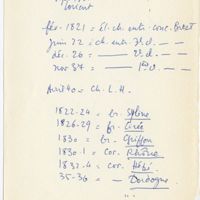 Lorient
fév. 1821 = El. ch. entr. conc. Brest
juin 22 = ch. entr. 3e cl. — —
déc. 26 = —— 2e cl. — —
nov 37 = —— 1ère cl. — —
Avril 40 = Ch. L.H.
1822-24 = br. Sylène
1826-29 = fr. Circé
1830 = br. Griffon
1830-1 = cor. Rhône
1832-4 = cor. Hébé
35-36 = — Dordogne